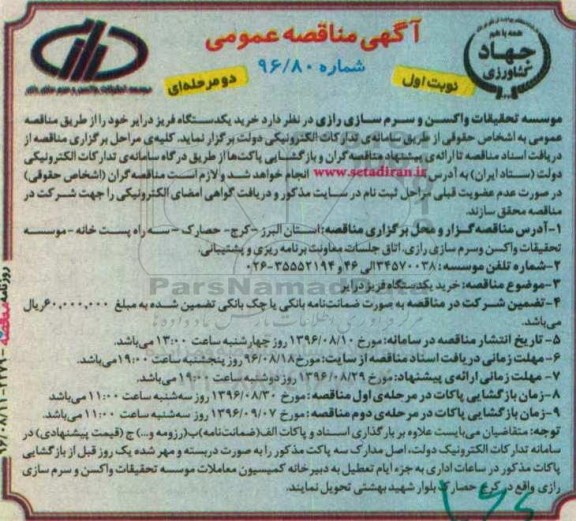 آگهی مناقصه عمومی
شماره ۹۶/۸۰
نوبت اول
دو مرحله‌ای
همه با هم
جهاد
کشاورزی
موسسه تحقیقات واکسن و سرم سازی رازی در نظر دارد خرید یکدستگاه فریز درایر خود را از طریق مناقصه
عمومی به اشخاص حقوقی از طریق سامانه‌ی تدارکات الکترونیکی دولت برگزار نماید. کلیه‌ی مراحل برگزاری مناقصه از
دریافت اسناد مناقصه تا ارائه‌ی پیشنهاد مناقصه‌گران و بازگشایی پاکت‌ها از طریق درگاه سامانه‌ی تدارکات الکترونیکی
دولت (ستاد ایران) به آدرس www.setadiran.ir انجام خواهد شد و لازم است مناقصه‌گران (اشخاص حقوقی)
در صورت عدم عضویت قبلی مراحل ثبت نام در سایت مذکور و دریافت گواهی امضای الکترونیکی را جهت شرکت در
مناقصه محقق سازند.
۱-آدرس مناقصه‌گزار و محل برگزاری مناقصه: استان البرز -کرج- حصارک -سه راه پست خانه -موسسه
تحقیقات واکسن وسرم سازی رازی، اتاق جلسات معاونت برنامه ریزی و پشتیبانی.
۲-شماره تلفن موسسه: ۳۴۵۷۰۰۳۸الی ۴۶ و ۳۵۵۵۲۱۹۴-۰۲۶
۳-موضوع مناقصه: خرید یکدستگاه فریز درایر
۴-تضمین شرکت در مناقصه به صورت ضمانت‌نامه بانکی یا چک بانکی تضمین شده به مبلغ ۶۰,۰۰۰,۰۰۰ریال
می‌باشد.
۵- تاریخ انتشار مناقصه در سامانه: مورخ ۱۳۹۶/۰۸/۱۰ روز چهارشنبه ساعت ۱۳:۰۰ می‌باشد.
۶- مهلت زمانی دریافت اسناد مناقصه از سایت: مورخ ۹۶/۰۸/۱۸ روز پنجشنبه ساعت ۱۹:۰۰ می‌باشد.
۷- مهلت زمانی ارائه‌ی پیشنهاد: مورخ ۱۳۹۶/۰۸/۲۹ روز دوشنبه ساعت ۱۹:۰۰ می‌باشد.
۸-زمان بازگشایی پاکات در مرحله‌ی اول مناقصه: مورخ ۱۳۹۶/۰۸/۳۰ روز سه‌شنبه ساعت ۱۱:۰۰ می‌باشد
۹-زمان بازگشایی پاکات در مرحله‌ی دوم مناقصه: مورخ ۱۳۹۶/۰۹/۰۷ روز سه‌شنبه ساعت ۱۱:۰۰ می‌باشد.
توجه: متقاضیان می‌بایست علاوه بر بارگذاری اسناد و پاکات الف(ضمانت‌نامه)ب(رزومه و...) ج (قیمت پیشنهادی) در
سامانه تدارکات الکترونیک دولت، اصل مدارک سه پاکت مذکور را به صورت دربسته و مهر شده یک روز قبل از بازگشایی
پاکات مذکور در ساعات اداری به جزء ایام تعطیل به دبیرخانه کمیسیون معاملات موسسه تحقیقات واکسن و سرم سازی
رازی واقع در کرج حصارک بلوار شهید بهشتی تحویل نمایند.
روزنامه مناقصه
ParsNamadData